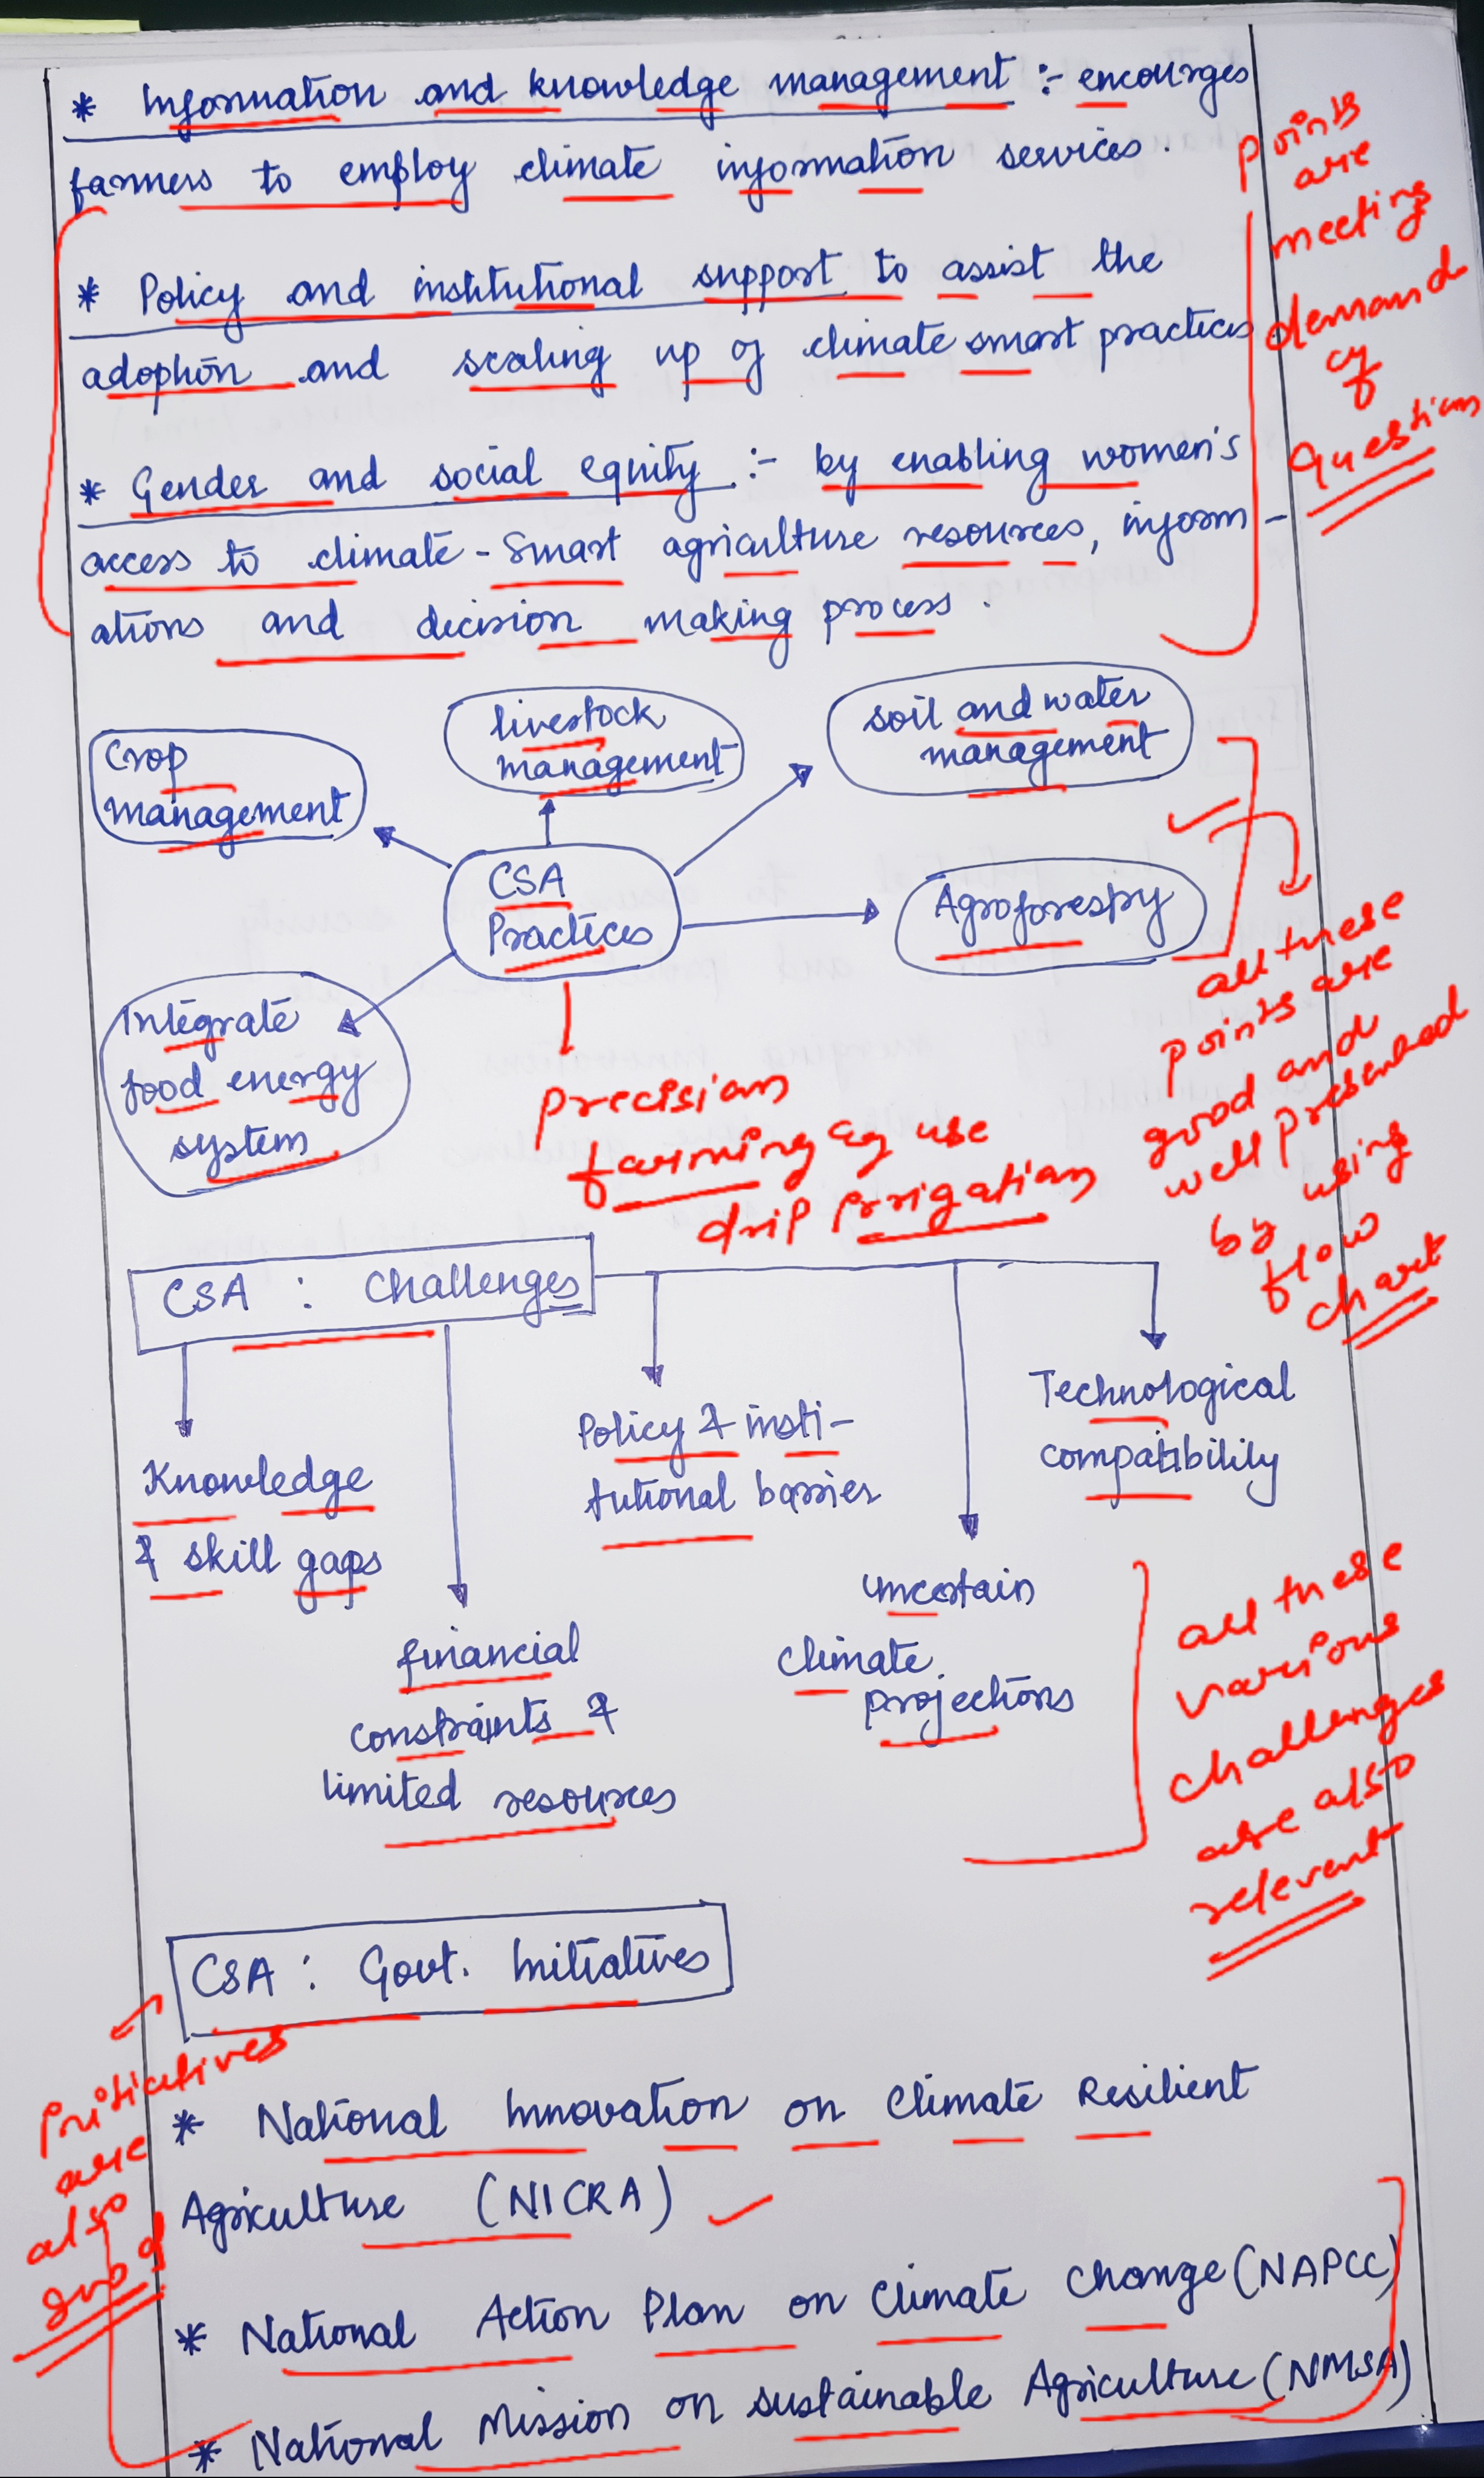 * Information and knowledge management :- encourges
farmers to employ climate information services.
* Policy and institutional support to assist the
adoption and scaling up of climate smart practices
* Gender and social equity :- by enabling women's
access to climate - smart agriculture resources, inform-
ations and decision making process.
points
are
meeting
demand
of
Question
Crop
management
livestock
management
soil and water
management
CSA
Practices
Agroforestry
Integrate
food energy
system
Precision
farming eg use
drip irrigation
all these
points are
good and
well presented
by using
flow
chart
CSA : Challenges
Knowledge
& skill gaps
financial
constraints &
limited resources
Policy & insti-
tutional barrier
uncertain
climate
projections
Technological
compatibility
all these
various
challenges
are also
relevant
CSA : Govt. Initiatives
initiatives
are
also
good
* National Innovation on Climate Resilient
Agriculture (NICRA)
* National Action Plan on Climate Change (NAPCC)
* National Mission on sustainable Agriculture (NMSA)